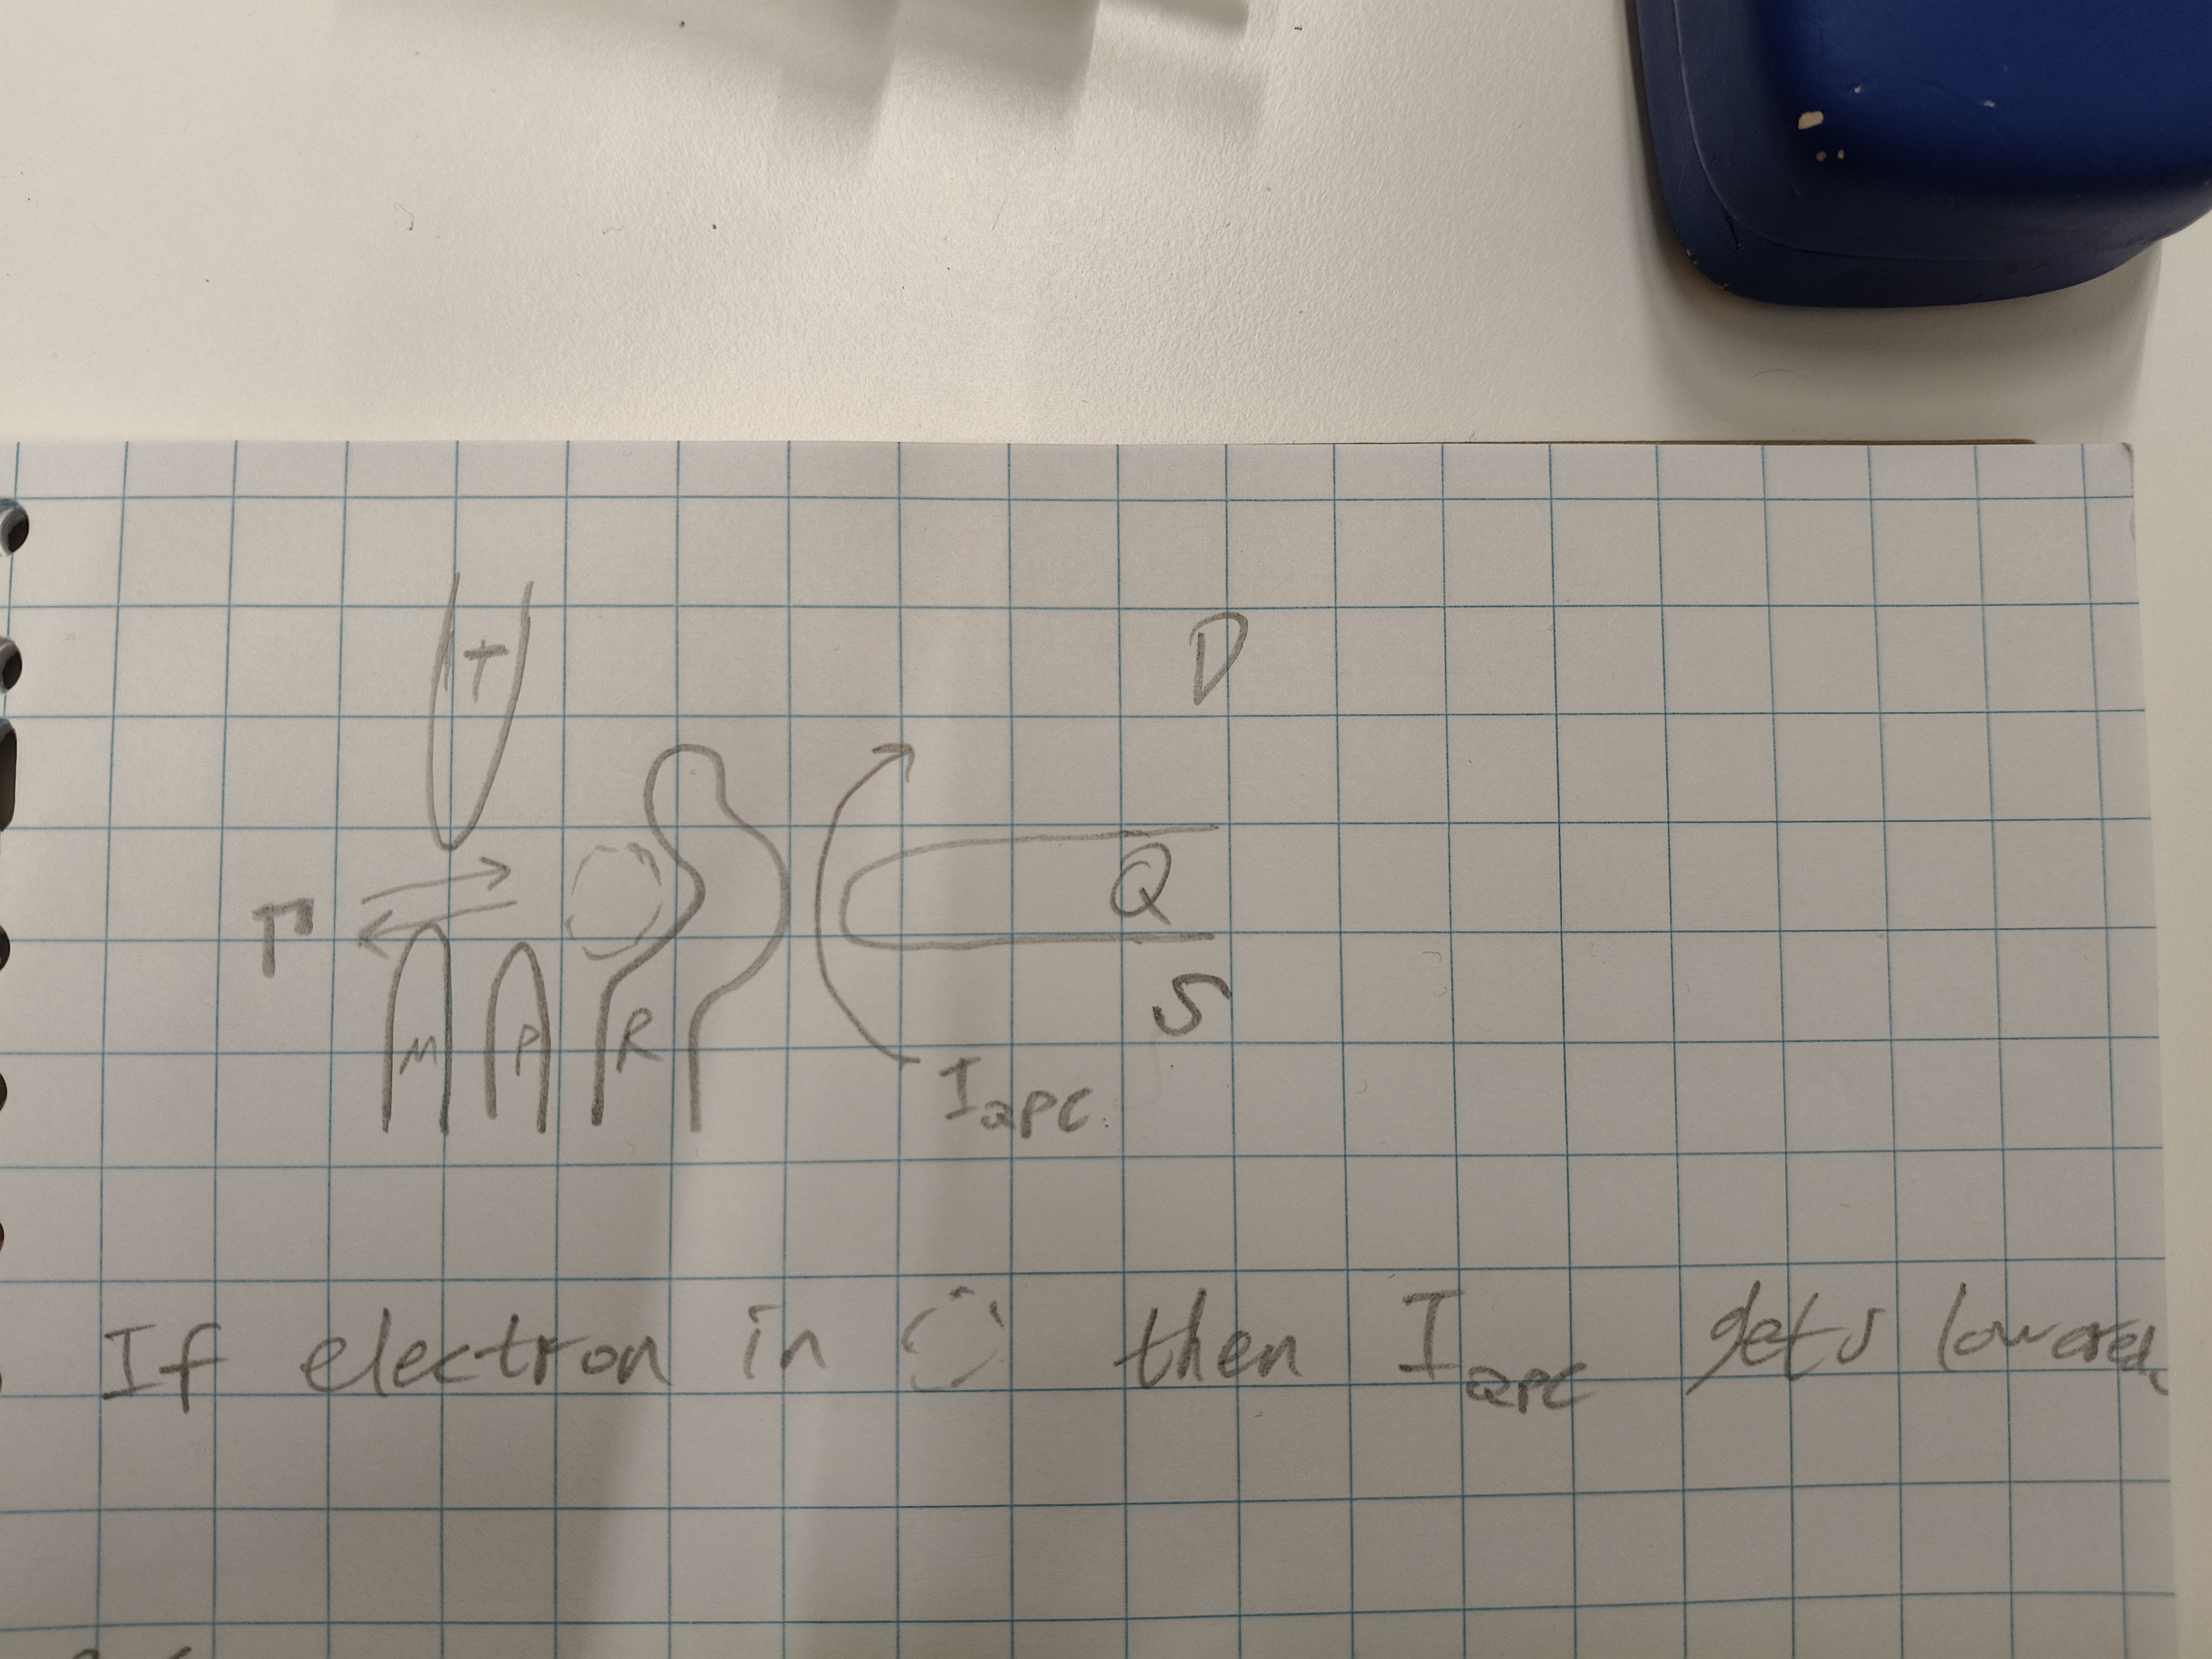 T
D
Q
Γ
S
M P R
I_QPC
If electron in then I_QPC gets lowered